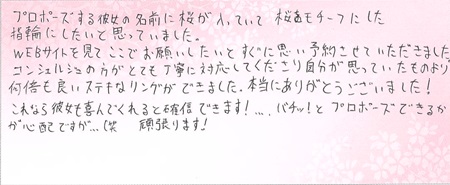 プロポーズする彼女の名前に桜が入っていて 桜をモチーフにした
指輪にしたいと思っていました。
WEBサイトを見てここでお願いしたいとすぐに思い予約させていただきました
コンシェルジュの方がとても丁寧に対応してくださり自分が思っていたものより
何倍も良いステキなリングができました。本当にありがとうございました!
これなら彼女も喜んでくれると確信できます!... バチッ!とプロポーズできるか
が心配ですが...(笑 頑張ります!